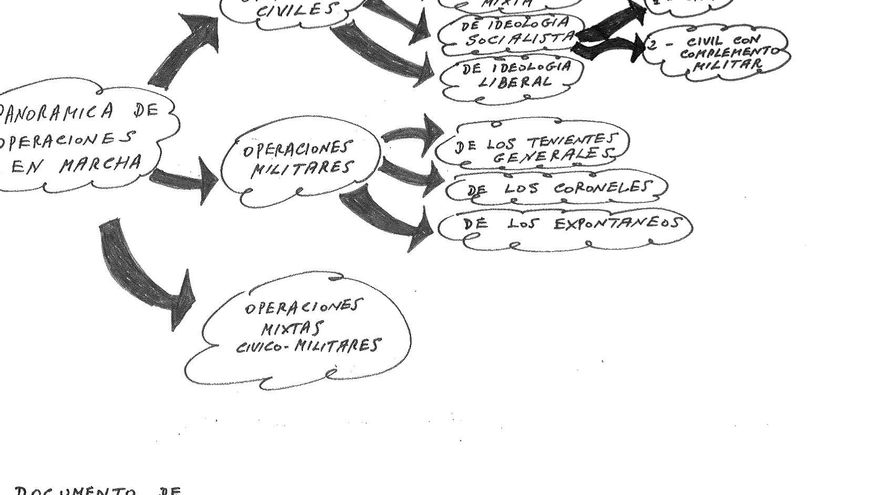 CIVILES
MIXTA
DE IDEOLOGIA
SOCIALISTA
DE IDEOLOGIA
LIBERAL
2 - CIVIL CON
COMPLEMENTO
MILITAR
PANORAMICA DE
OPERACIONES
EN MARCHA
OPERACIONES
MILITARES
DE LOS TENIENTES
GENERALES
DE LOS CORONELES
DE LOS EXPONTANEOS
OPERACIONES
MIXTAS
CIVICO-MILITARES
DOCUMENTO DE